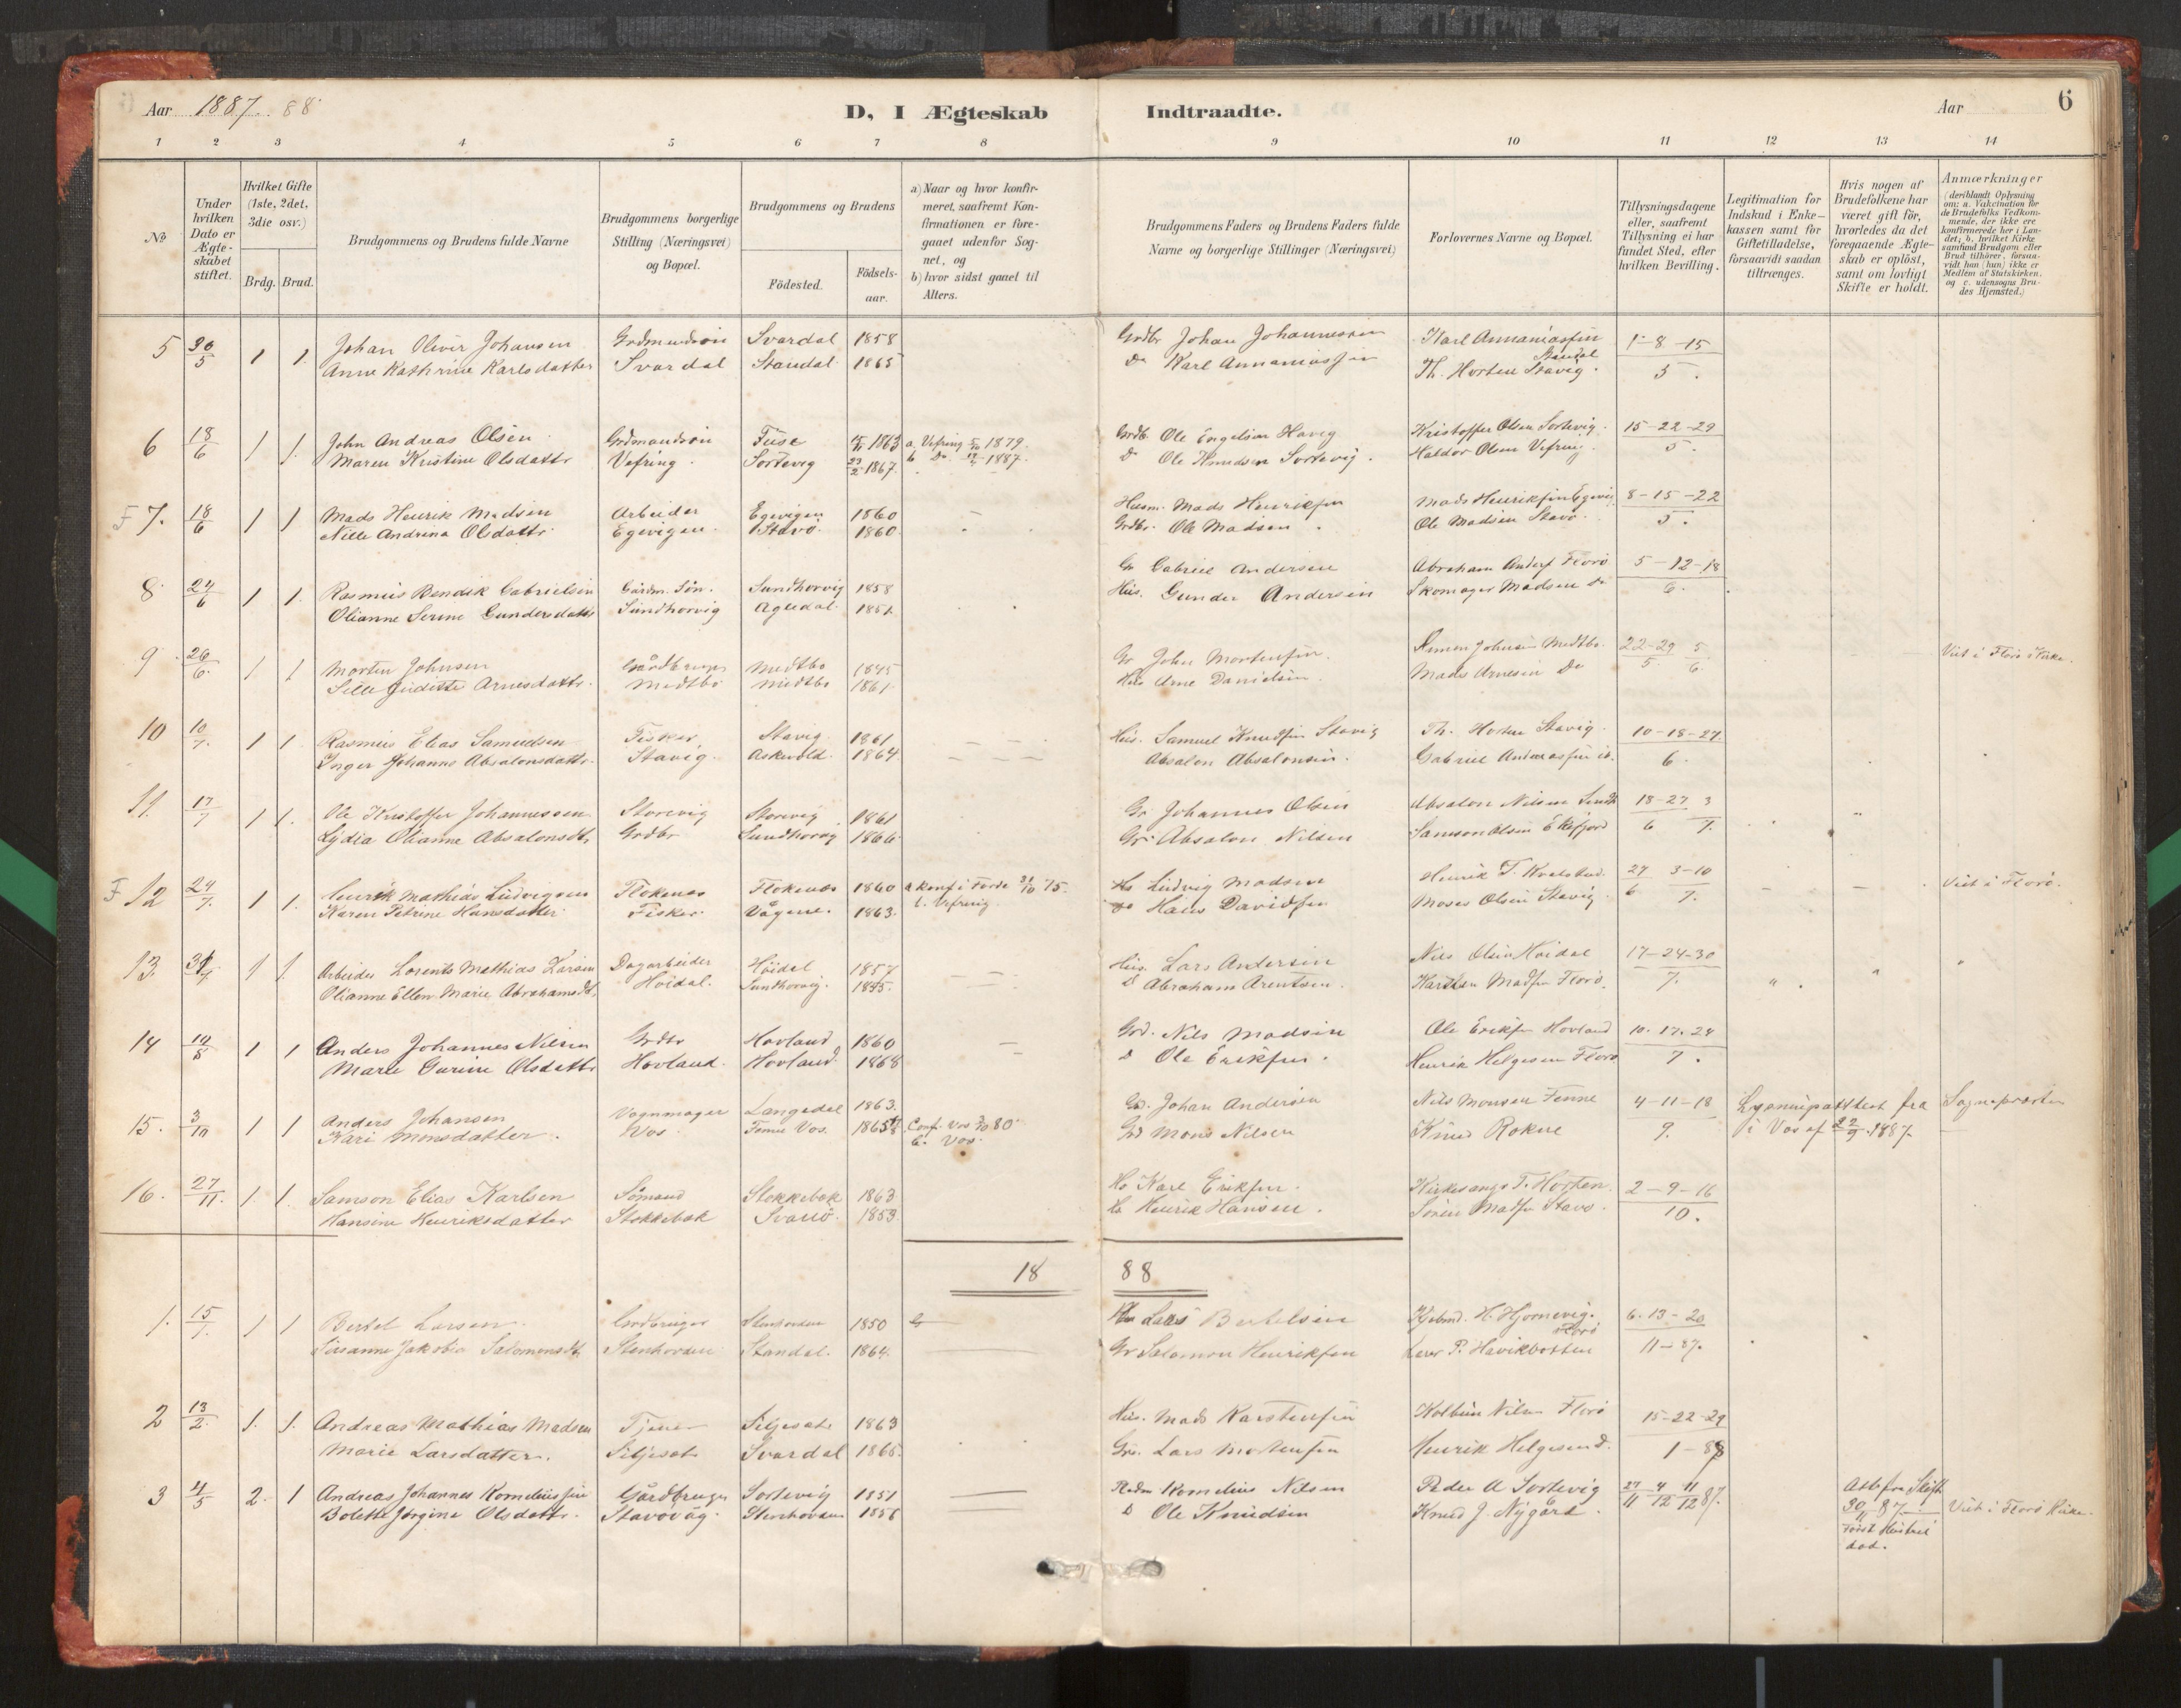 Aar 1887. 88
D, I Ægteskab Indtraadte.
Aar 6
1 2 3 4 5 6 7 8 9 10 11 12 13 14
№
Under hvilken Dato er Ægteskabet stiftet.
Hvilket Gifte (1ste, 2det, 3die osv.)
Brdg. Brud.
Brudgommens og Brudens fulde Navne
Brudgommens borgerlige Stilling (Næringsvei) og Bopæl.
Brudgommens og Brudens
Födested. Födselsaar.
a) Naar og hvor konfirmeret, saafremt Konfirmationen er foregaaet udenfor Sognet, og
b) hvor sidst gaaet til Alters.
Brudgommens Faders og Brudens Faders fulde Navne og borgerlige Stillinger (Næringsvei)
Forlovernes Navne og Bopæl.
Tillysningsdagene eller, saafremt Tillysning ei har fundet Sted, efter hvilken Bevilling.
Legitimation for Indskud i Enkekassen samt for Giftetilladelse, forsaavidt saadan tiltrænges.
Hvis nogen af Brudefolkene har været gift för, hvorledes da det foregaaende Ægteskab er oplöst, samt om lovligt Skifte er holdt.
Anmærkninger (deriblandt Oplysning om: a. Vakcination for de Brudefolks Vedkommende, der ikke ere konfirmerede her i Landet; b. hvilket Kirkesamfund Brudgom eller Brud tilhörer, forsaavidt han (hun) ikke er Medlem af Statskirken, og c. udensogns Brudes Hjemsted.)
5 30/5 1 1. Johan Oliver Johansen Grdmandsön Svardal 1858 Grdbr Johan Johannessen Karl Annaniassen Standal 1-8-15
Anne Kathrine Karlsdatter Svardal Standal 1865 Do Karl Annaniassen Th. Horten Stavig. 5.
6 18/6 1 1. John Andreas Olsen Grdmandsön Fuse 1863 a. Vefring 1879. Grdb. Ole Engelsen Havig Kristoffer Olsen Sortevig. 15-22-29
Maren Kristine Olsdattr Vefring. Sortevig 23/2 1867. b Do. 1887. D Ole Knudsen Sortevig. Haldor Olsen Vefring. 5.
F 7. 18/6 1 1 Mads Henrik Madsen Arbeider Egevigen 1860 Husm. Mads Henriksen Mads Henriksen Egevig 8-15-22
Nille Andrina Olsdattr. Egevigen. Stavö. 1860. Grdbr. Ole Madsen. Ole Madsen Stavö. 5.
8. 24/6 1 1. Rasmus Bendik Gabrielsen Gårdm. Sön. Sundhorvig 1858 Gr Gabriel Andersen Abraham Anders Florö 5-12-18
Olianne Serine Gundersdattr Sundhorvig Agledal. 1851. Hus. Gunder Andersen Skomager Madsen do 6.
9 26/6. 1 1 Morten Johnsen Gårdbruger Medtbö 1845 Gr John Mortensen. Simen Johnsen Medtbö. 22-29/5 5/6. Viet i Florö Kirke.
Sille Juditte Arnesdattr. Medtbö Medtbö 1861. Hus Arne Danielsen. Mads Arnesen Do
10 10/7. 1 1. Rasmus Elias Samuelsen Fisker Stavig 1861 Hus. Samuel Knudsen Stavig Th. Horten Stavig. 10-18-27
Inger Johanne Absalonsdattr. Stavig. Askevold. 1864. Absalon Absalonsen. Gabriel Andreassen ib. 6.
11. 17/7 1 1. Ole Kristoffer Johannessen Storevig Storevig 1861 Gr Johannes Olsen Absalon Nilsen Sundh. 18-27 3
Lydia Olianne Absalonsdtr, Grdbr Sundhorvig 1866. Gr. Absalon Nilsen Samson Olsen Eikefjord 6 7.
F 12 24/7. 1 1. Henrik Mathias Ludvigsen Flokenes Flokenes 1860 a konf i Förde 31/10 75. Hs Ludvig Madsen Henrik T. Kvelstad. 27 3-10 Viet i Florö.
Karen Petrine Hansdatter Fisker. Vågene. 1863. b. Vefring. Do Hans Davidsen Moses Olsen Stavig. 6 7.
13. 31/7. 1 1. Arbeider Lorents Mathias Larsen Dagarbeider Höidal 1857 Hus. Lars Andersen Nils Olsen Höidal 17-24-30
Olianne Ellen Marie Abrahamsdt. Höidal. Sundhorvig. 1845. D Abraham Arentsen. Karsten Madsen Florö. 7.
14 14/8 1 1 Anders Johannes Nilsen Grdbr Hovland 1860 Grd. Nils Madsen Ole Eriksen Hovland 10.17.24
Marie Gurine Olsdattr Hovland. Hovland. 1868 D Ole Eriksen. Henrik Helgesen Florö 7.
15. 3/10 1 1 Anders Johansen Vognmager Langedal 1863. Gr. Johan Andersen Nils Monsen Fenne 4-11-18 Lysningsattest fra Sognepresten
Kari Monsdatter. Vos. Fenne Vos. 1865 Conf. Vos 80. b. Vos. Grd Mons Nilsen Knud Rokne 9. i Vos af 22/9. 1887.
16. 27/11. 1. 1. Samson Elias Karlsen Sömand Stokkebæk 1863 Hs Karl Eriksen. Kirkesanger T. Horten. 2-9-16
Hansine Henriksdatter Stokkebæk Svanö. 1853. Hs Henrik Hansen. Sören Madsen Stavö. 10.
18 88
1. 15/1. 1 1 Bertel Larsen. Gårdbruger Stenhovden 1850 Lars Bertelsen Kjöbmd. H. Hjornevig. Florö 6.13-20
Susanne Jakobia Salomonsdt. Stenhovden Standal. 1864. Gr Salomon Henriksen P. Havikbotten 11-87.
2 13/2. 1. 1. Andreas Mathias Madsen Tjener Siljesæt 1863 Hus. Mads Karstensen Kolbein Nilsen Florö 15-22-29
Marie Larsdatter. Siljesæt Svardal 1865. Gr. Lars Mortensen Henrik Helgesen d. 1-88
3 4/5 2. 1 Andreas Johannes Korneliussen Gårdbruger Sortevig 1851 Kornelius Nilsen Peder A Sortevig 27/11 4/12 11/12 87. Att. fra Skift. 30/11 87.
Bolette Jörgine Olsdattr. Stavövåg. Stenhovden 1856 D Ole Knudsen Knud J. Nygård. Först Hustru död. Viet i Florö Kirke.